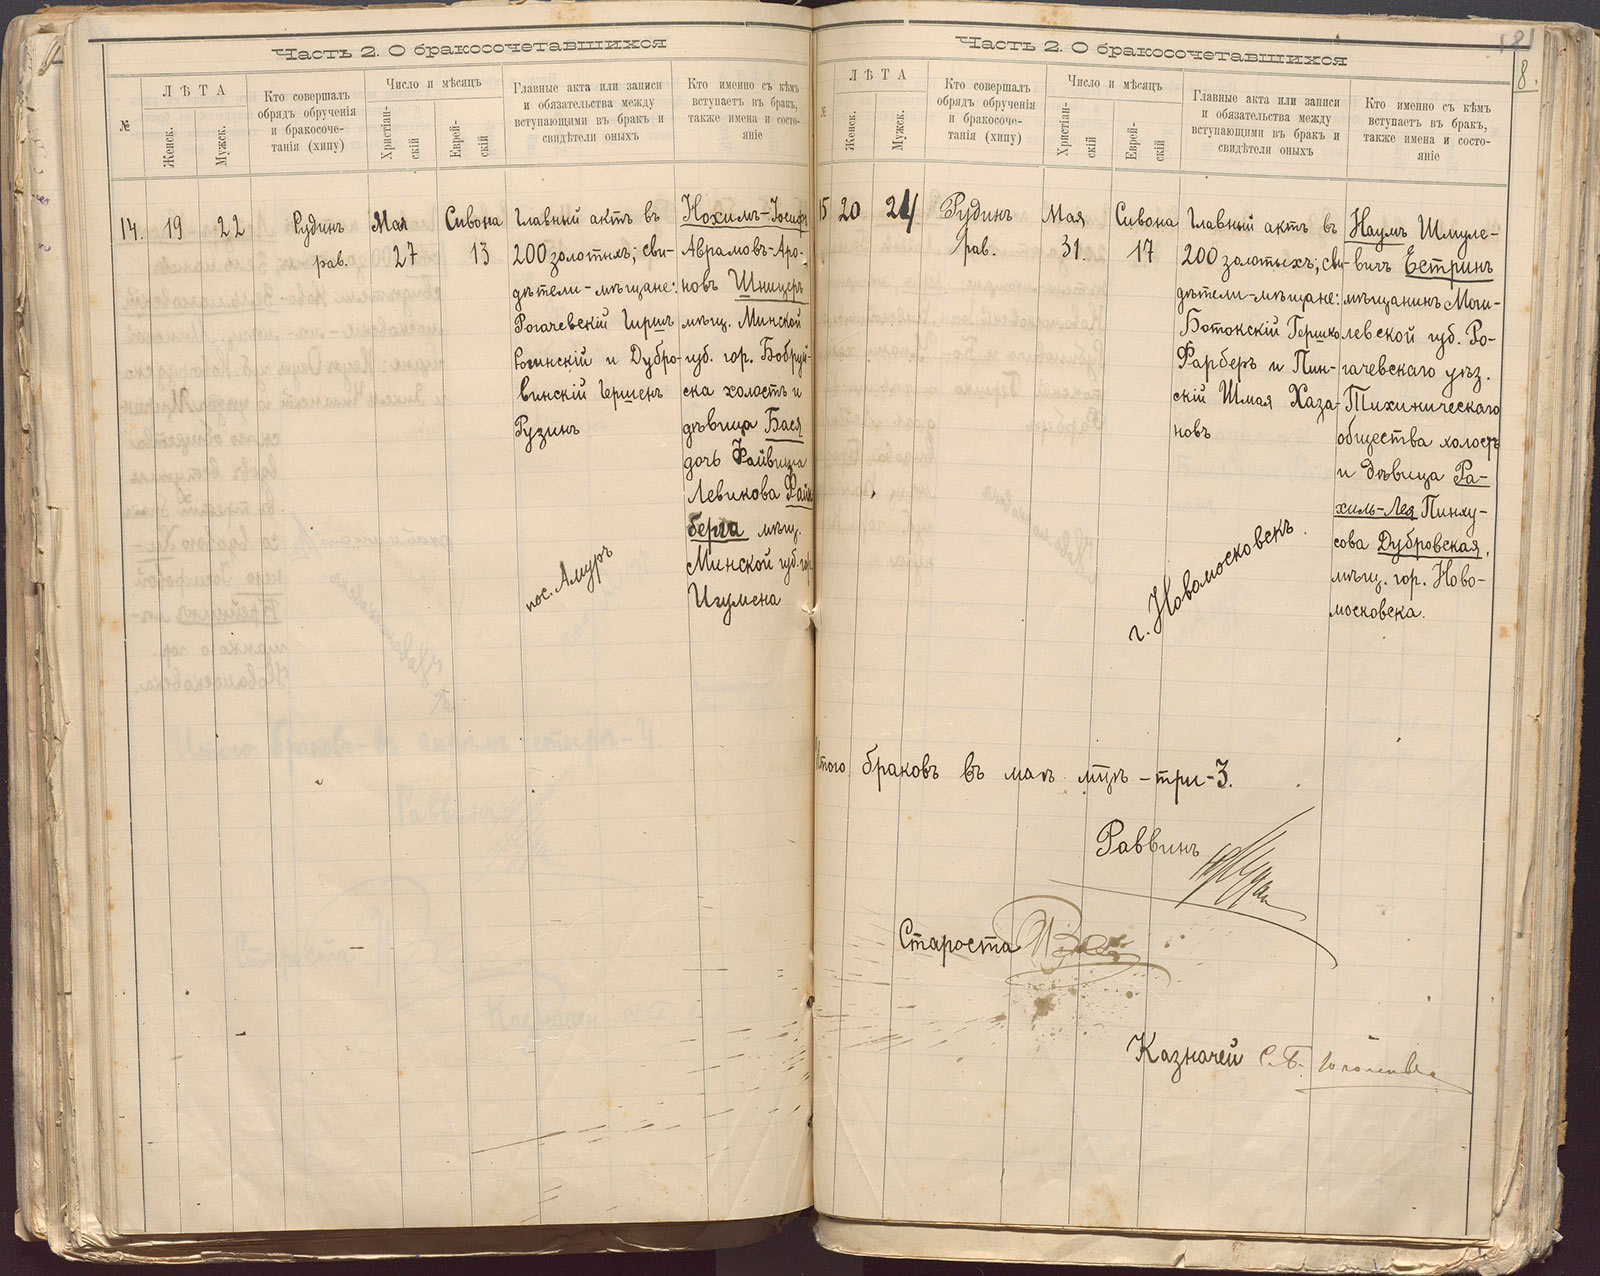 Часть 2. О бракосочетавшихся
№
ЛѢТА
Женск.
Мужск.
Кто совершалъ
обрядъ обрученія
и бракосоче-
танія (хипу)
Число и мѣсяцъ
Христіан-
скій
Еврей-
скій
Главные акта или записи
и обязательства между
вступающими въ бракъ и
свидѣтели оныхъ
Кто именно съ кѣмъ
вступаетъ въ бракъ,
также имена и состо-
яніе
14.
19
22
Рудинъ
рав.
Мая
27
Сивона
13
Главный актъ въ
200 золотыхъ; сви-
дѣтели-мѣщане:
Рогачевскій Гиршъ
и Дубро-
винскій Гершенъ
Рузинъ
пос. Амуръ
Нохимъ-Іосифъ
Аврамовъ-Аро-
новъ Шницеръ
мѣщ. Минской
губ. гор. Бобруй-
ска холостъ и
дѣвица Бася
дочь Файвиша
Левикова Файн-
берга мѣщ.
Минской губ. гор.
Игумена
Часть 2. О бракосочетавшихся
8.
№
ЛѢТА
Женск.
Мужск.
Кто совершалъ
обрядъ обрученія
и бракосоче-
танія (хипу)
Число и мѣсяцъ
Христіан-
скій
Еврей-
скій
Главные акта или записи
и обязательства между
вступающими въ бракъ и
свидѣтели оныхъ
Кто именно съ кѣмъ
вступаетъ въ бракъ,
также имена и состо-
яніе
15
20
24
Рудинъ
рав.
Мая
31.
Сивона
17
Главный актъ въ
200 золотыхъ; сви-
дѣтели-мѣщане:
Ботокскій Гершко
Фарберъ и Пин-
скій Шмая Хаза-
новъ
г. Новомосковскъ.
Наумъ Шмуле-
вичъ Естринъ
мѣщанинъ Моги-
левской губ. Ро-
гачевскаго уѣз.
Тихиническаго
общества холостъ
и дѣвица Ра-
хиль-Лея Пинху-
сова Дубровская,
мѣщ. гор. Ново-
московска.
Итого браковъ въ маѣ мцѣ - три-3.
Раввинъ
Староста
Казначей